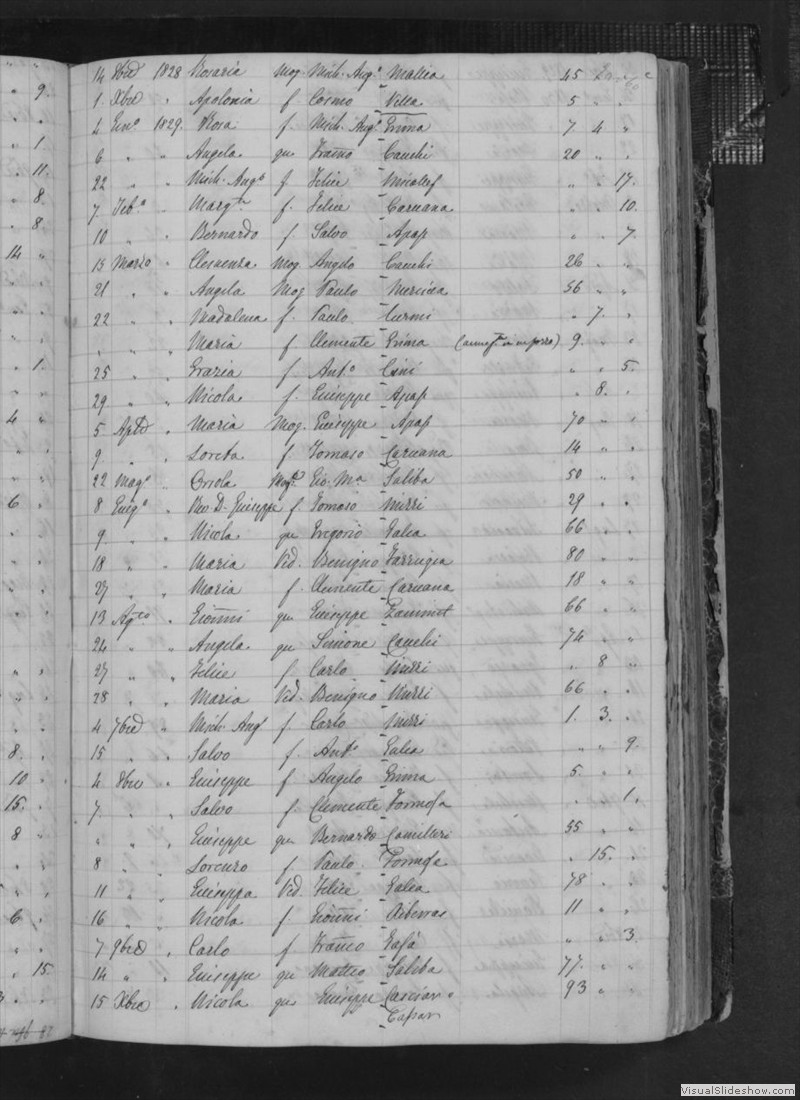 9.
1
11.
8
8
14
1.
4
6
8.
10
15.
8
6
15.
14 8bre 1828 Rosaria Mog. Mich. Ang.o Mallia 45
1. Xbre " Apolonia f. Cosmo Vella 5 " "
4 Gen.o 1829. Rosa f. Mich. Ang.o Grima 7 4 "
6 " " Angela qu Franco Cauchi 20 " "
22 " Mich. Ang.o f Felice Micalef " " 17.
7. Feb.o " Marg.ta f. Felice Caruana " " 10.
10 " Bernardo f. Salvo Apap " " 7
15 Marzo " Clemenza Mog. Angelo Cauchi 26 " "
21 " " Angela Mog Paulo Mercieca 56 " "
22 " " Madalena f. Paulo Curmi " 7. "
" " " Maria f Clemente Grima 9. " "
25 " " Grazia f. Ant.o Cini " " 5.
29 " " Nicola f. Giuseppe Apap " 8. "
5 Aprle " Maria Mog. Giuseppe Apap 70 " "
9 " " Loreta f Tomaso Caruana 14 " "
22 Mag.o " Orsola Mog. Gio. Ma. Saliba 50 " "
8 Giug.o " Rev. D. Giuseppe f Tomaso Mizzi 29 " "
9 " " Nicola qu Gregorio Galea 66 " "
18 " " Maria Vid. Benigno Farrugia 80 " "
27 " " Maria f Clemente Caruana 18 " "
13 Ag.sto " Gionni qu Giuseppe Zammit 66 " "
24 " " Angela qu Simone Cauchi 74 " "
27 " " Felice f Carlo Mizzi " 8 "
28 " " Maria Vid. Benigno Mizzi 66 " "
4 7bre " Mich. Ang.o f. Carlo Mizzi 1. 3. "
15 " " Salvo f. Ant.o Galea " " 9.
4 8bre " Giuseppe f Angelo Grima 5. " "
7. " " Salvo f. Clemente Formosa " " 1.
" " " Giuseppe qu Bernardo Camilleri 55 " "
8 " " Lorenzo f Paulo Formosa " 15. "
11 " " Giuseppa Vid. Felice Galea 78 " "
16 " " Nicola f Gionni Xiberras 11 " "
7 9bre " Carlo f. Franco Tafà " " 3.
14 " " Giuseppe qu Matteo Saliba 77. " "
15 Xbre " Nicola qu Giuseppe 93 " "
VisualSlideshow.com